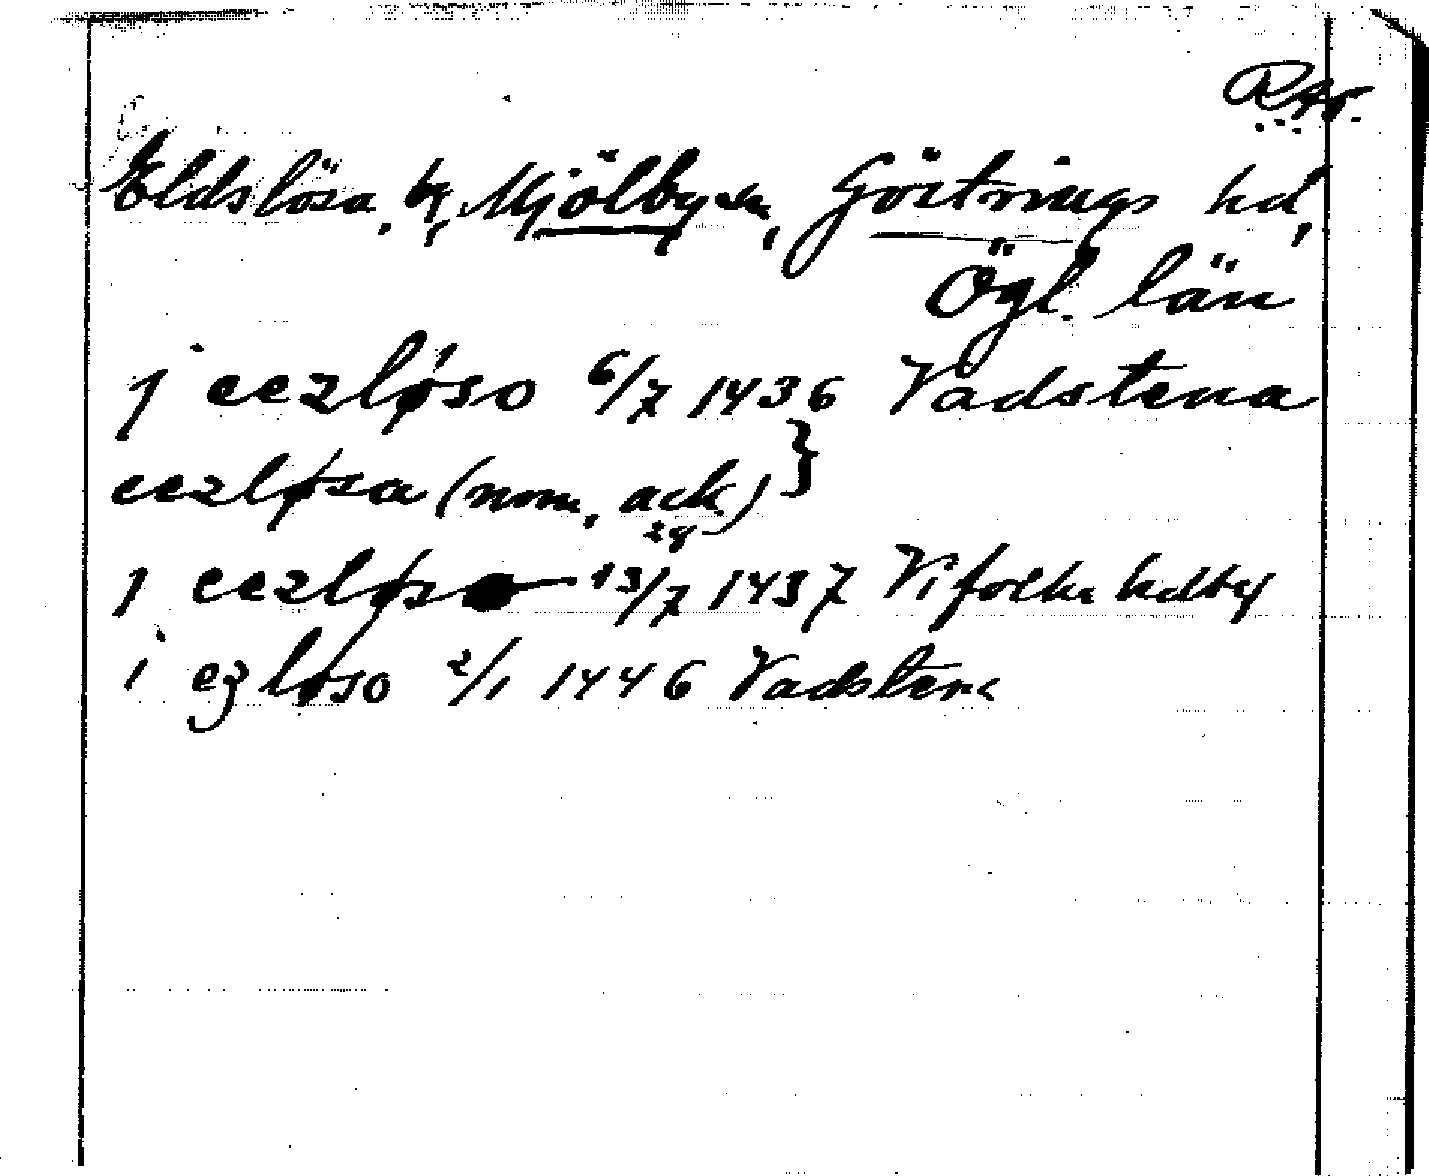 RAp.
Eldslösa, by, Mjölby sn, Göstrings hd,
Ögl. län
j eezløso 6/7 1436 Vadstena
eezløsa (nom, ack) }
28
j eezløso 13/7 1437 Vifolka hdby
i ezløso 2/1 1446 Vadstena